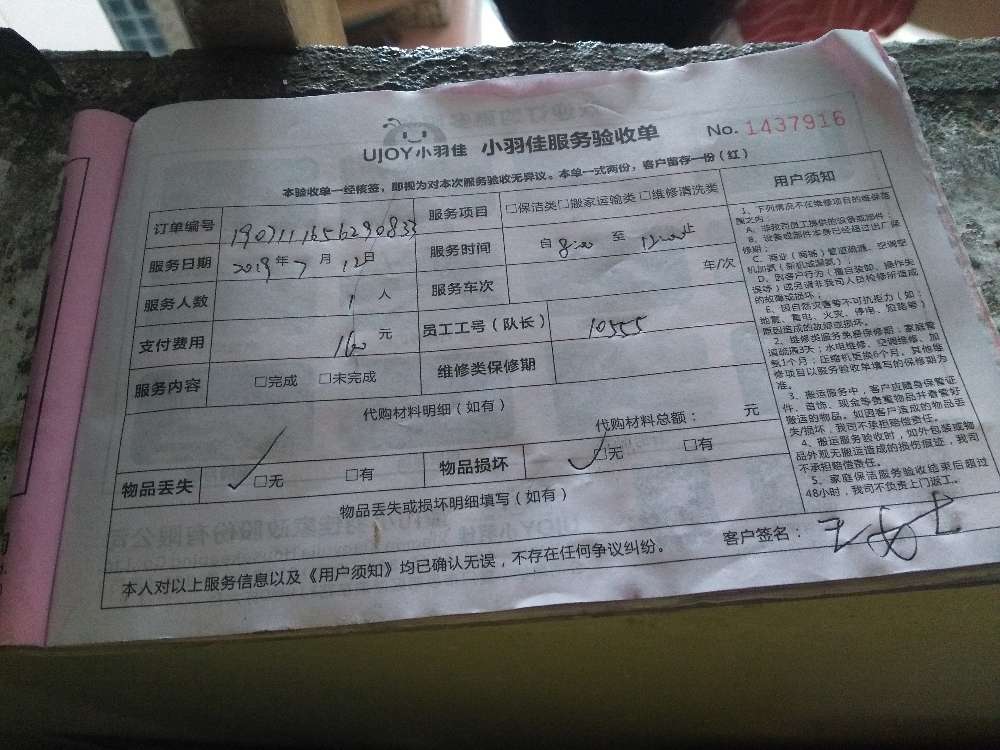 UJOY小羽佳 小羽佳服务验收单 No. 1437916
本验收单一经核签，即视为对本次服务验收无异议。本单一式两份，客户留存一份（红）
订单编号 1907111656290833 服务项目 □保洁类□搬家运输类 □维修清洗类
服务日期 2019年7月12日 服务时间 自8:00至12:00止
服务人数 1人 服务车次 车/次
支付费用 160元 员工工号（队长） 10555
服务内容 □完成 □未完成 维修类保修期
代购材料明细（如有）
代购材料总额： 元
物品丢失 ✓□无 □有 物品损坏 ✓□无 □有
物品丢失或损坏明细填写（如有）
客户签名：
本人对以上服务信息以及《用户须知》均已确认无误，不存在任何争议纠纷。
用户须知
1、下列情况不在维修项目的维保范
围之内：
A、非我司员工提供的设备或部件；
B、设备或部件本身已经超过出厂保
修期；
C、商业（商场）管道疏通、空调空
机加氟（新机或漏氟）；
D、因客户行为（擅自装卸、操作失
误等）或另请非我司人员检修所造成
的故障或损坏；
E、因自然灾害等不可抗拒力（如：
地震、雷电、火灾、停电、短路等）
原因造成的故障或损坏。
2、维修类服务免费保修期：家庭管
道疏通3天；水电维修、空调维修、加
氟1个月；压缩机更换6个月，其他维
修项目以服务验收单填写的保修期为
准。
3、搬运服务中，客户应随身保管证
件、首饰、现金等贵重物品并看管好
搬运的物品。如因客户造成的物品丢
失/损坏，我司不承担赔偿责任。
4、搬运服务验收时，如外包装或物
品外观无搬运造成的损伤痕迹，我司
不承担赔偿责任。
5、家庭保洁服务验收结束后超过
48小时，我司不负责上门返工。